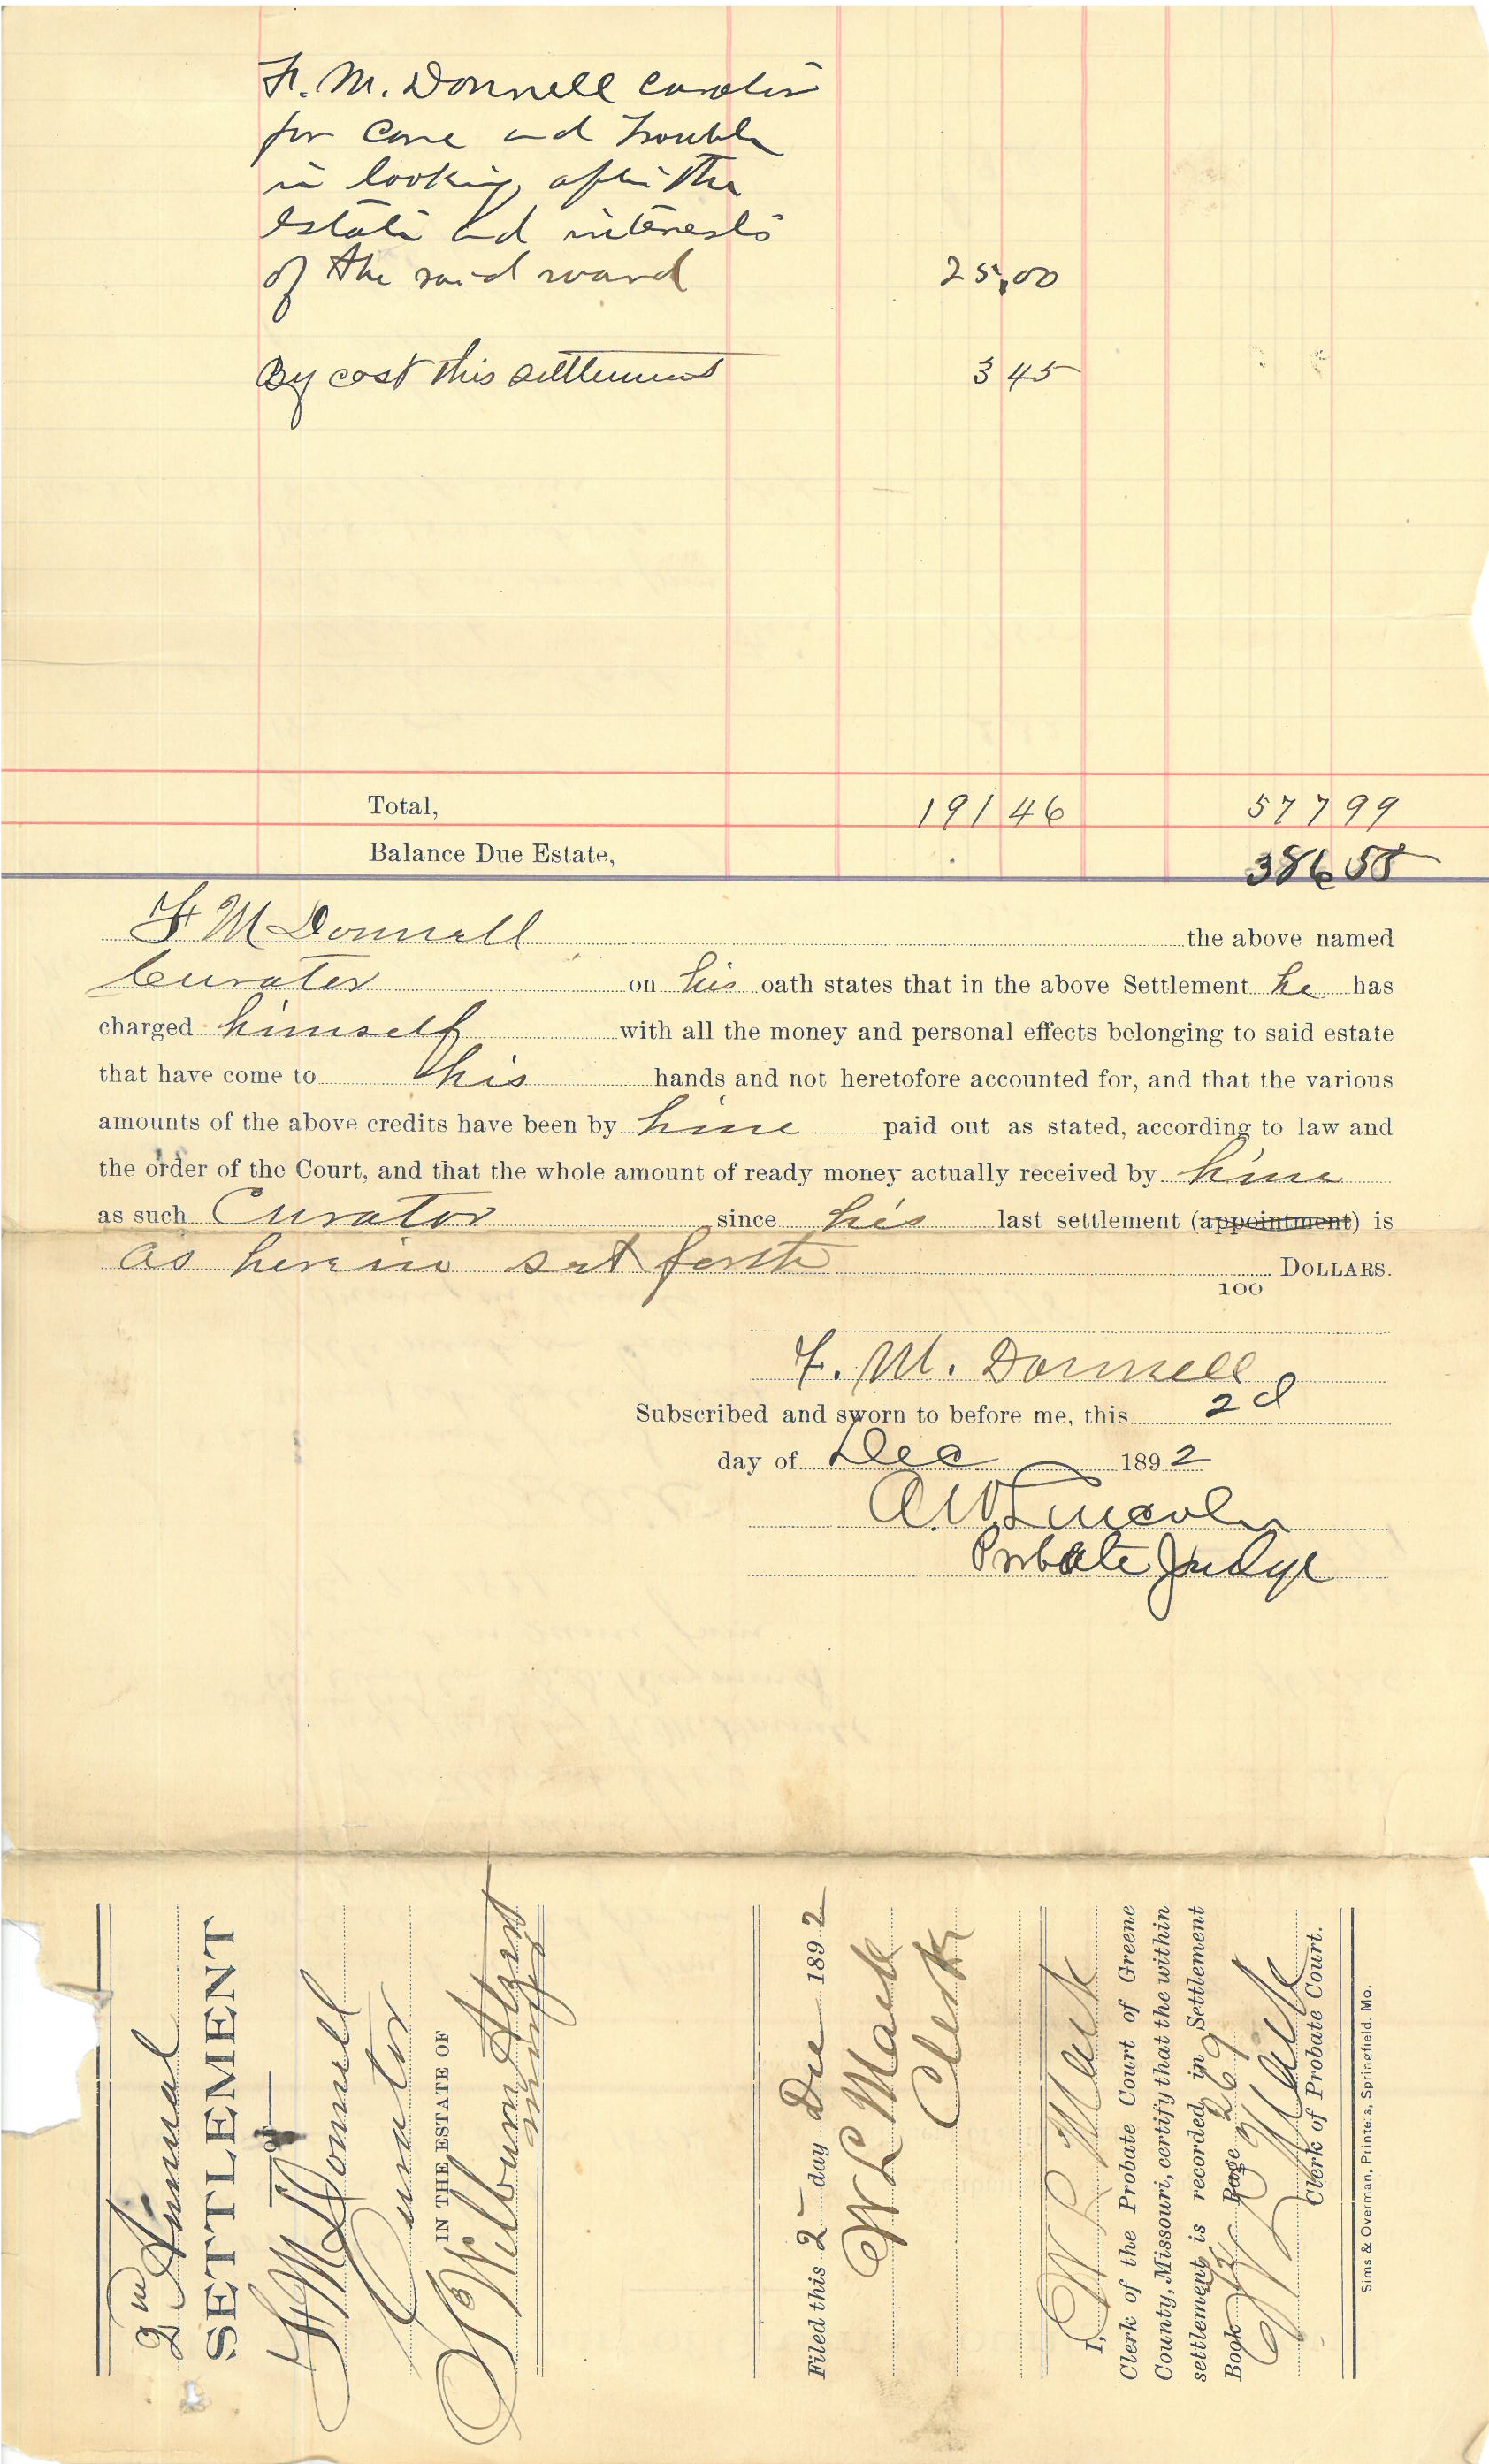 F. M. Donnell Curator
for care and trouble
in looking after the
estate and interests
of the said ward 25,00
By cost this settlement 3 45
Total, 191 46 577 99
Balance Due Estate, 386 58
F M Donnell the above named
Curator on his oath states that in the above Settlement he has
charged himself with all the money and personal effects belonging to said estate
that have come to his hands and not heretofore accounted for, and that the various
amounts of the above credits have been by him paid out as stated, according to law and
the order of the Court, and that the whole amount of ready money actually received by him
as such Curator since his last settlement (appointment) is
as herein set forth 100 DOLLARS.
F. M. Donnell
Subscribed and sworn to before me, this 2d
day of Dec 1892
A. W. Lincoln
Probate Judge
2nd Annual
SETTLEMENT
OF
F M Donnell
Curator
IN THE ESTATE OF
Wilburn
minor
Filed this 2 day Dec 1892
W L Mack
Clerk
I, W L Mack
Clerk of the Probate Court of Greene
County, Missouri, certify that the within
settlement is recorded in Settlement
Book Page 269
W L Mack
Clerk of Probate Court.
Sims & Overman, Printers, Springfield, Mo.